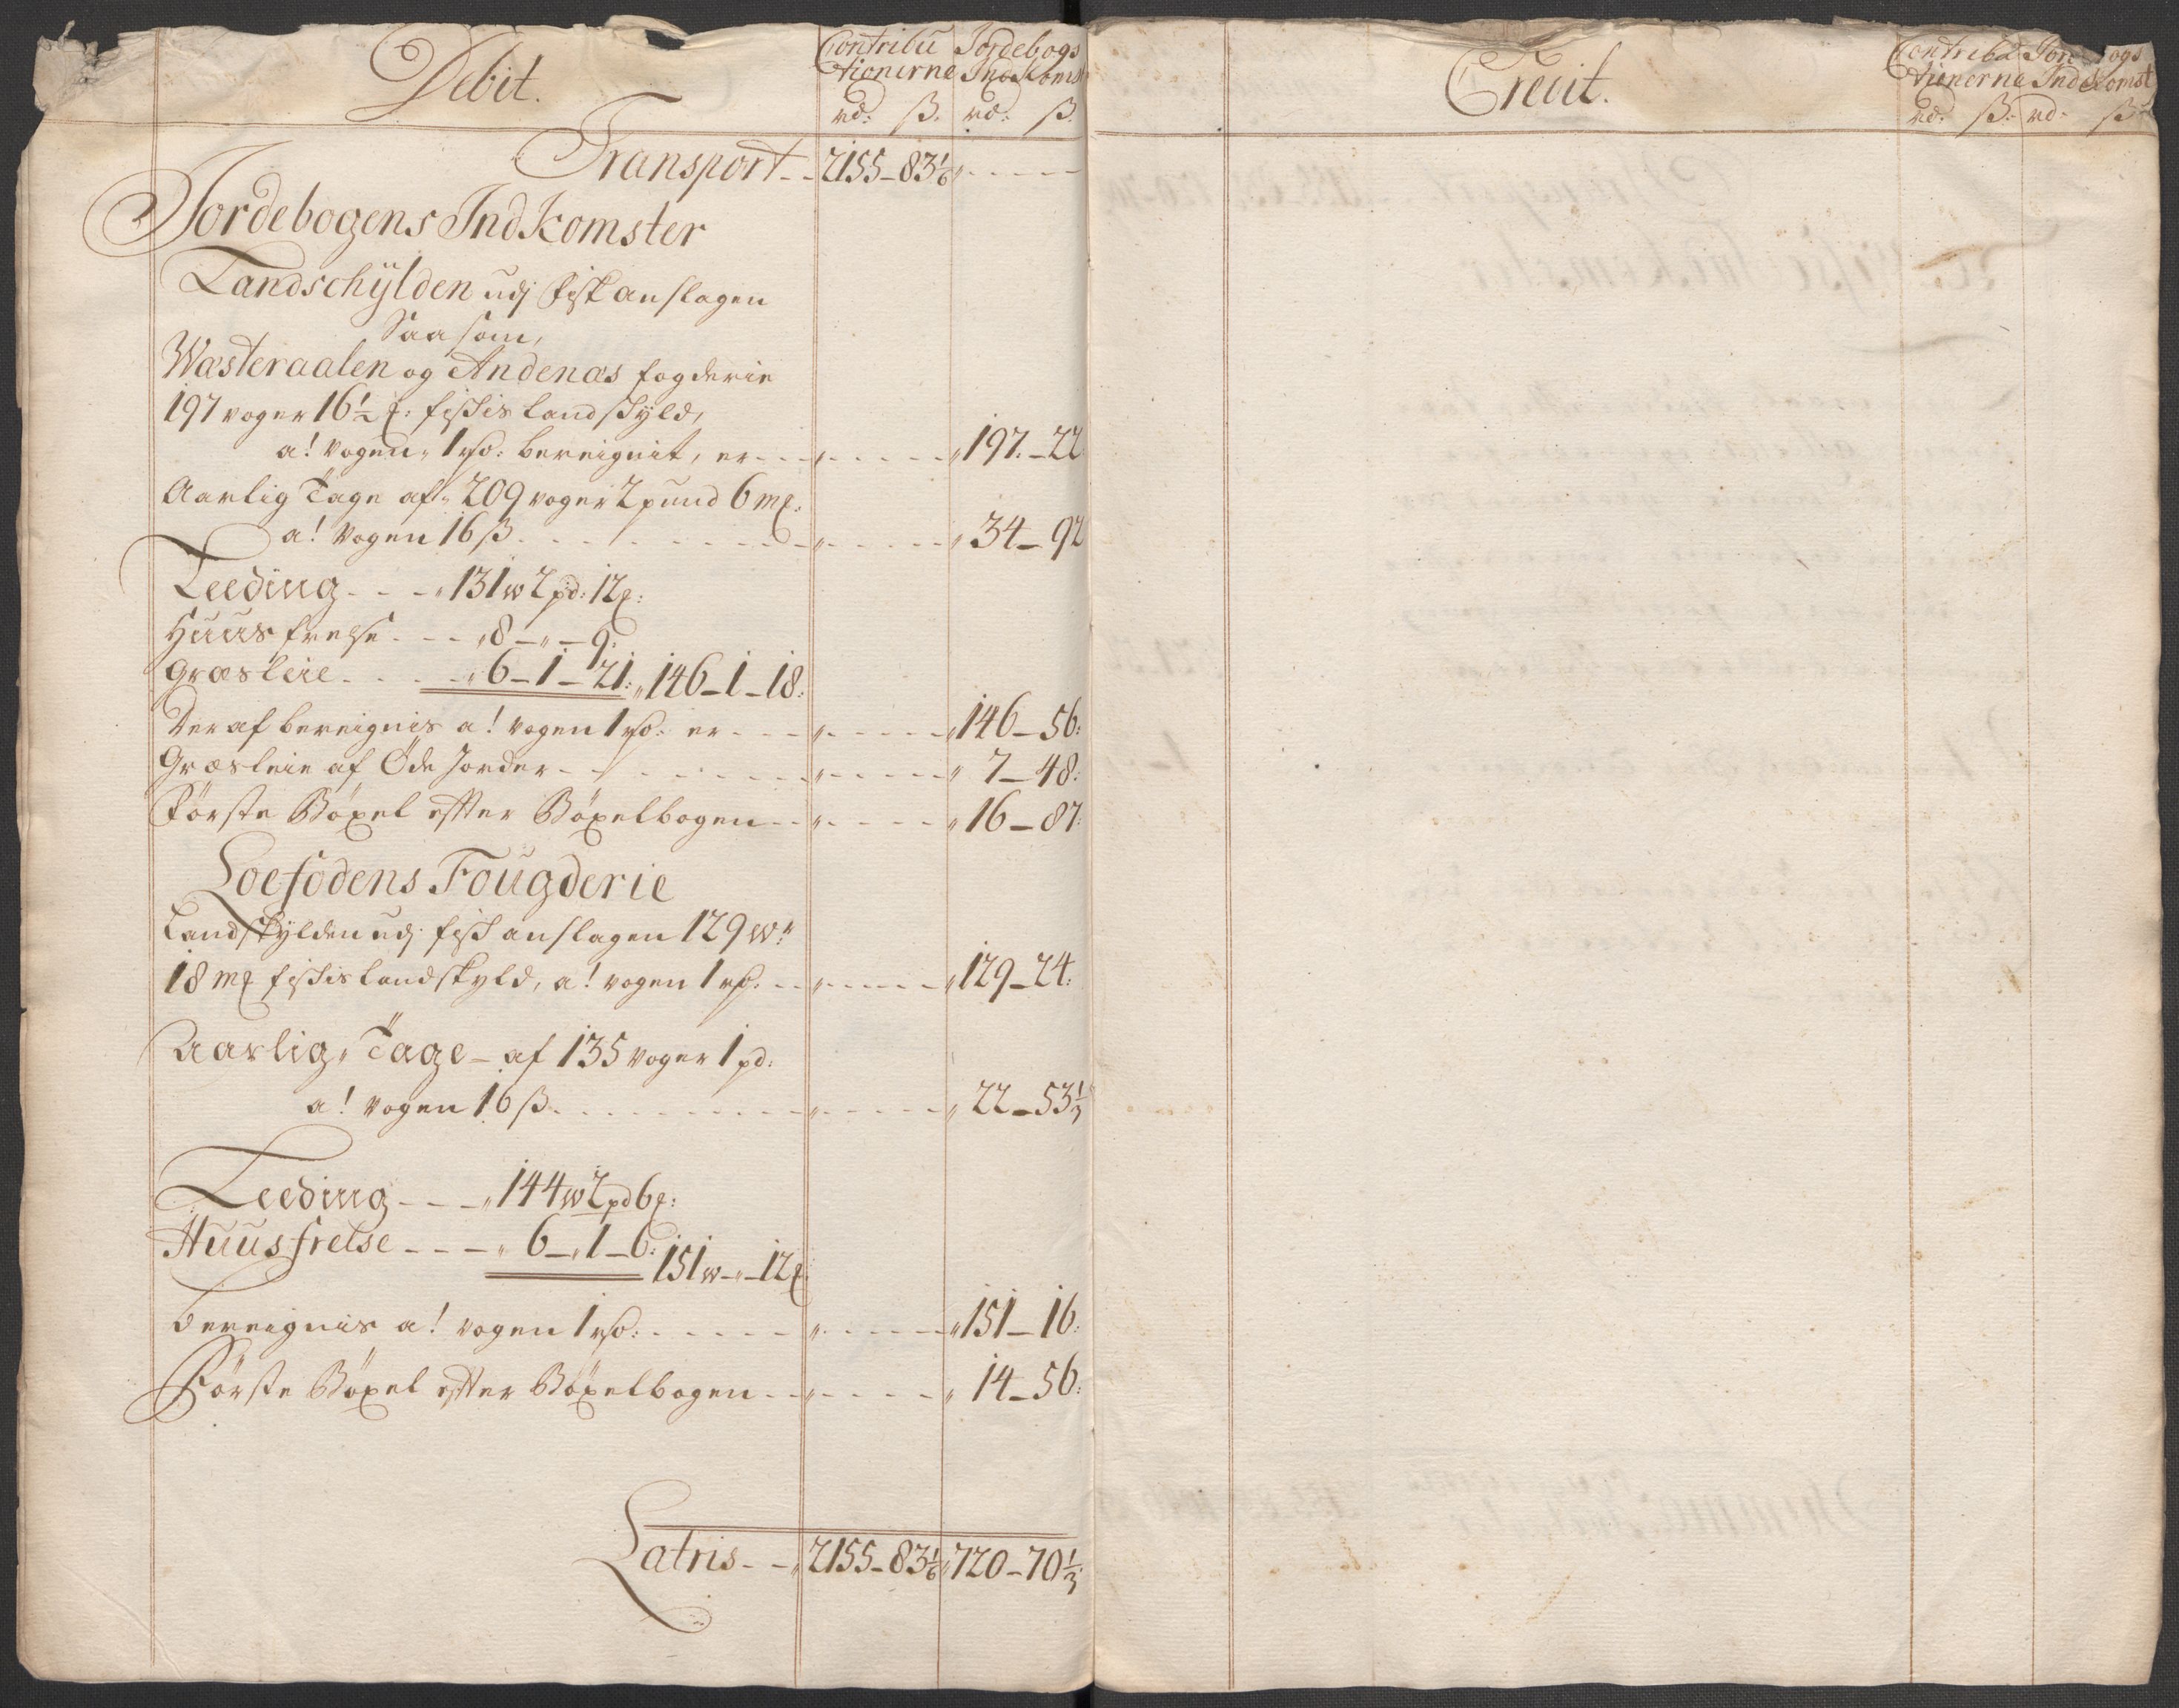 Debit.
Contribu
tionerne
Jordebogs
Indkomst
rd: ß. rd: ß.
Transport - - 2155 - 83 1/6 " - - - -
Jordebogens Indkomster
Landschÿlden udj fisk anslagen
Saasom,
Wæsteraalen og Andenæs fogderie
197 woger 16½ ℔: fiskis landskyld,
a! Vogen " 1 rdr: beregnit, er - - - " - - - - " 197. - 22
Aarlig Tage af " 209 woger 2 pund 6 m℔:
a! Vogen 16 ß - - - - " - - - - " 34 - 92
Leeding - - - " 131 w 2 pd: 12 ℔:
Huusfrelse - - - " 8 - " - 9:
Græsleie - - - - " 6 - 1 - 21: " 146 - 1 - 18:
Deraf beregnis a! vogen 1 rdr: er - - - " - - - - " 146 - 56:
Græsleie af Öde Jorder - - - - " - - - - " 7 - 48:
Förste Böxel efter Böxelbogen - - " - - - - " 16 - 87:
Loefodens Fougderie
Landskylden udj fisk anslagen 129 w:
18 m℔ fiskis landskyld, a! vogen 1 rdr. - - " - - - - " 129 - 24:
Aarlig " Tage - af 135 woger 1 pd:
a! vogen 16 ß - - - - " - - - - " 22 - 53 1/3
Leeding - - - " 144 w 2 pd 6 ℔:
Huusfrelse - - - " 6 - " 1 - 6: 151 w - " - 12 ℔
beregnis a! vogen 1 rdr: - - - - " - - - - " 151 - 16:
Förste Böxel efter Böxelbogen - - " - - - - " 14 - 56:
Latris - - " 2155 - 83 1/6 " 720 - 70 1/3
Credit.
Contribu
tionerne
Jordebogs
Indkomst
rd: ß: rd: ß